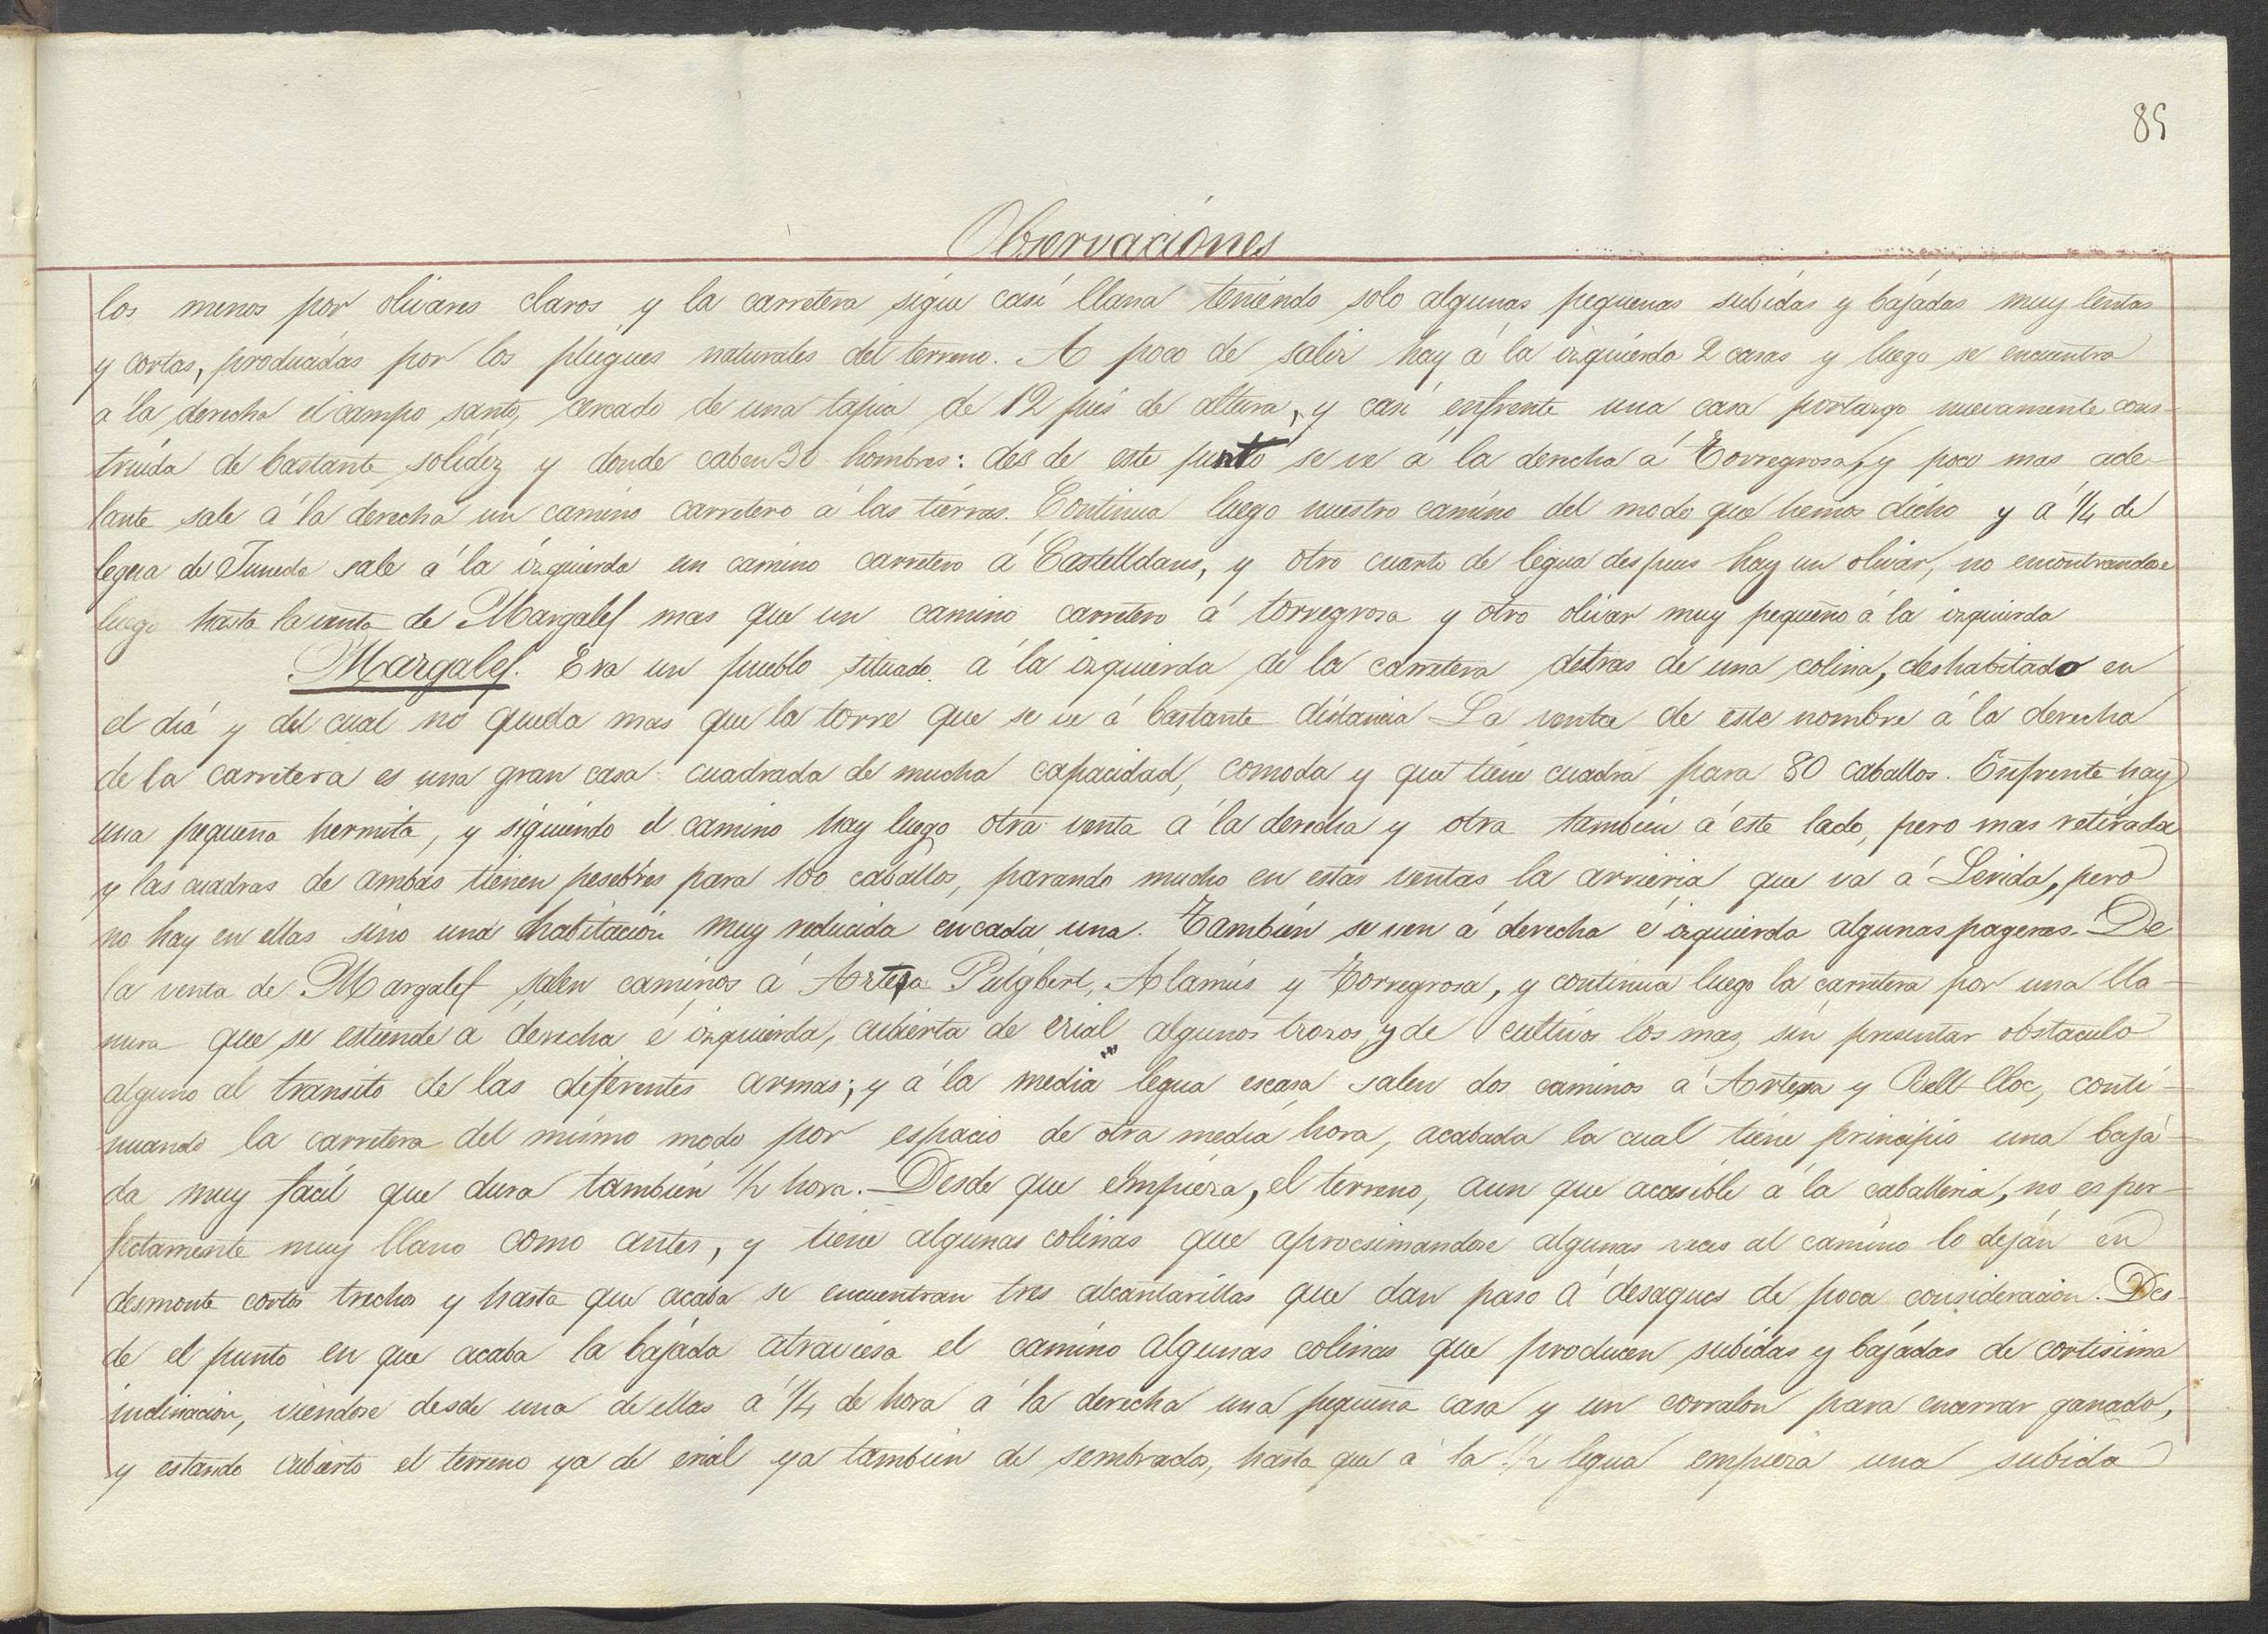 85
Observaciónes
los menos por olivares claros y la carretera sigue casi llana teniendo solo algunas pequeñas subidas y bajadas muy lentas
y cortas, producidas por los pliegues naturales del terreno. A poco de salir hay á la izquierda 2 casas y luego se encuentra
á la derecha el campo santo, cercado de una tapia de 12 pies de altura, y casi enfrente una casa portazgo nuevamente cons-
truida de bastante solidez y donde caben 30 hombres: des de este punto se ve á la derecha á Torregrosa, y poco mas ade-
lante sale á la derecha un camino carretero á las tierras. Continua luego nuestro camino del modo que hemos dicho y á 1/4 de
legua de Juneda sale á la izquierda un camino carretero á Castelldans, y otro cuarto de legua despues hay un olivar, no encontrandose
luego hasta la venta de Margalef mas que un camino carretero á torregrosa y otro olivar muy pequeño á la izquierda
Margalef. Era un pueblo situado á la izquierda de la carretera detras de una colina, deshabitado en
el diá y del cual no queda mas que la torre que se ve á bastante distancia La venta de este nombre á la derecha
de la carretera es una gran casa cuadrada de mucha capacidad, comoda y que tiene cuadra para 80 caballos. Enfrente hay
una pequeña hermita, y siguiendo el camino hay luego otra venta á la derecha y otra también á este lado, pero mas retirada
y las cuadras de ambas tienen pesebres para 100 caballos, parando mucho en estas ventas la arrieria que va á Lerida, pero
no hay en ellas sino una habitación muy reducida en cada una. También se ven á derecha é izquierda algunas pageras. De
la venta de Margalef salen caminos á Artesa Puigbert, Alamús y Torregrosa, y continua luego la carretera por una lla-
nura que se estiende a derecha é izquierda, cubierta de erial algunos trozos, y de cultivos los mas, sin presentar obstaculo
alguno al transito de las diferentes armas; y á la media legua escasa salen dos caminos á Artesa y Bell-lloc, conti-
nuando la carretera del mismo modo por espacio de otra media hora, acabada la cual tiene principio una baja-
da muy facil que dura también 1/2 hora. Desde que empieza, el terreno, aun que accesible á la caballeria, no es per-
fectamente muy llano como antes, y tiene algunas colinas que aprocsimandose algunas veces al camino lo dejan en
desmonte cortos trechos y hasta que acaba se encuentran tres alcantarillas que dan paso á desagues de poca consideracion. Des-
de el punto en que acaba la bajada atraviesa el camino algunas colinas que producen subidas y bajadas de cortisima
inclinacion, viendose desde una de ellas á 1/4 de hora á la derecha una pequeña casa y un corralon para encerrar ganado,
y estando cubierto el terreno ya de erial ya tambien de sembrados, hasta que á la 1/2 legua empieza una subida